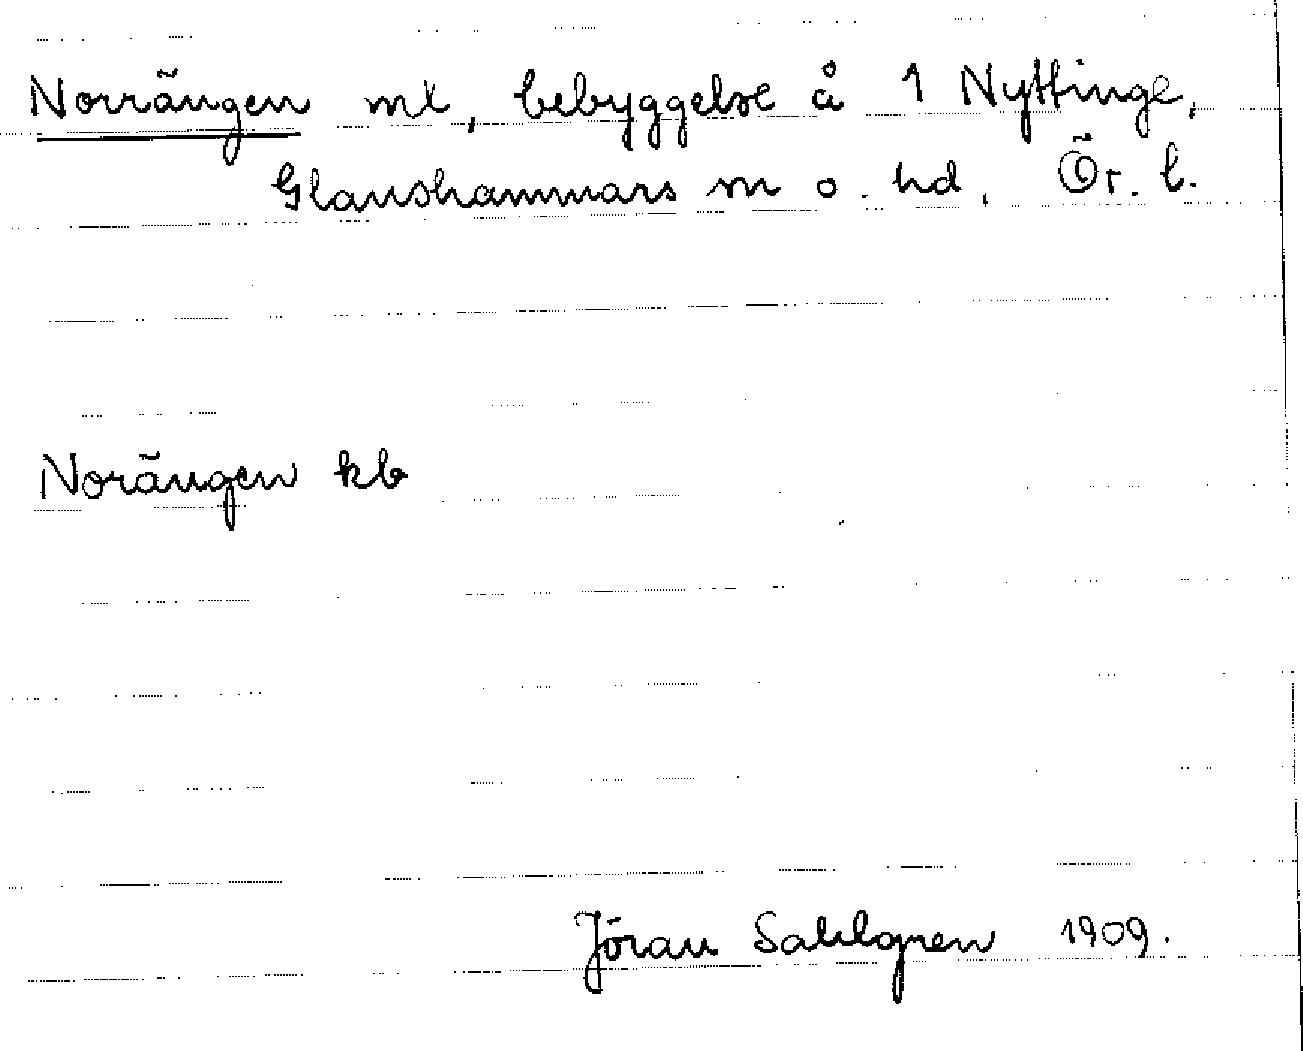 Norrängen mt, bebyggelse å 1 Nyttinge,
Glanshammars sn o. hd, Ör. l.
Norängen kb
Jöran Sahlgren 1909.